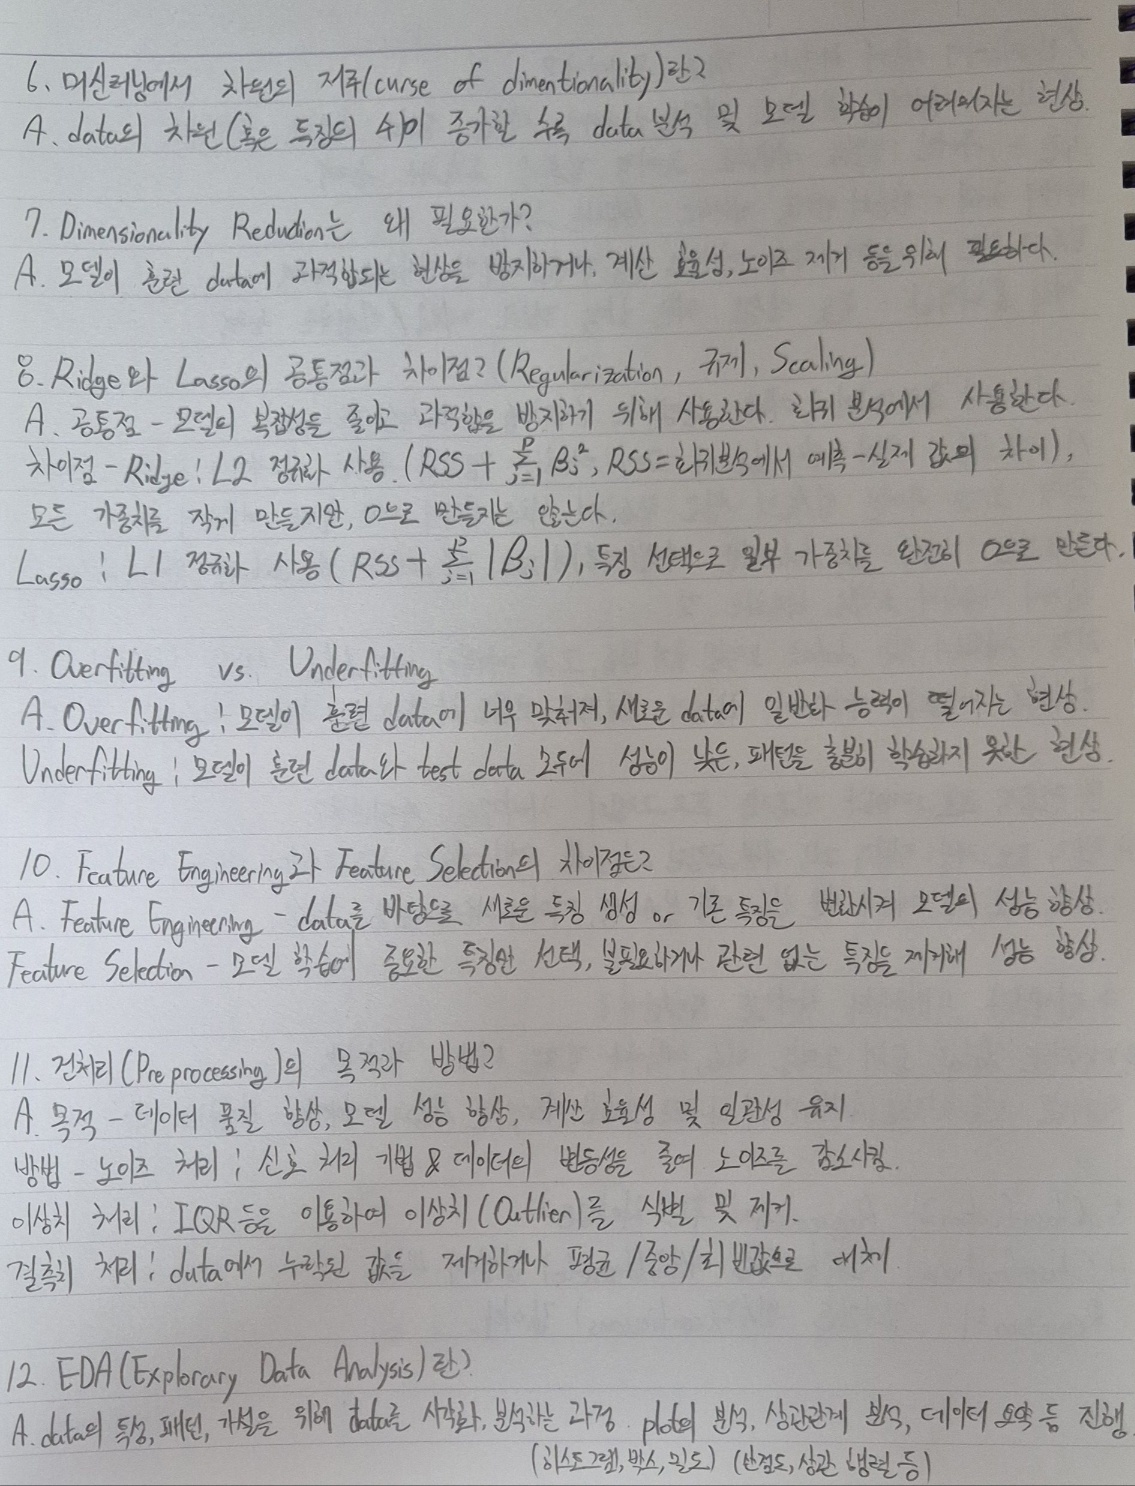 6. 머신러닝에서 차원의 저주(curse of dimentionality)란?
A. data의 차원(혹은 특징의 수)이 증가할 수록 data 분석 및 모델 학습이 어려워지는 현상.
7. Dimensionality Reduction는 왜 필요한가?
A. 모델이 훈련 data에 과적합되는 현상을 방지하거나, 계산 효율성, 노이즈 제거 등을 위해 필요하다.
8. Ridge와 Lasso의 공통점과 차이점? (Regularization, 규제, Scaling)
A. 공통점 - 모델의 복잡성을 줄이고 과적합을 방지하기 위해 사용한다. 회귀 분석에서 사용한다.
차이점 - Ridge : L2 정규화 사용. (RSS + Σ_{j=1}^{p} β_j², RSS = 회귀분석에서 예측-실제 값의 차이),
모든 가중치를 작게 만들지만, 0으로 만들지는 않는다.
Lasso : L1 정규화 사용 (RSS + Σ_{j=1}^{p} |β_j|), 특징 선택으로 일부 가중치를 완전히 0으로 만든다.
9. Overfitting vs. Underfitting
A. Overfitting : 모델이 훈련 data에 너무 맞춰져, 새로운 data에 일반화 능력이 떨어지는 현상.
Underfitting : 모델이 훈련 data와 test data 모두에 성능이 낮은, 패턴을 충분히 학습하지 못한 현상.
10. Feature Engineering과 Feature Selection의 차이점은?
A. Feature Engineering - data를 바탕으로 새로운 특징 생성 or 기존 특징을 변환시켜 모델의 성능 향상.
Feature Selection - 모델 학습에 중요한 특징만 선택, 불필요하거나 관련 없는 특징을 제거해 성능 향상.
11. 전처리(Preprocessing)의 목적과 방법?
A. 목적 - 데이터 품질 향상, 모델 성능 향상, 계산 효율성 및 일관성 유지
방법 - 노이즈 처리 : 신호 처리 기법 & 데이터의 변동성을 줄여 노이즈를 감소시킴.
이상치 처리 : IQR 등을 이용하여 이상치(Outlier)를 식별 및 제거.
결측치 처리 : data에서 누락된 값을 제거하거나 평균/중앙/최빈값으로 대체
12. EDA(Explorary Data Analysis)란?
A. data의 특성, 패턴, 가설을 위해 data를 시각화, 분석하는 과정. plot의 분석, 상관관계 분석, 데이터 요약 등 진행.
(히스토그램, 박스, 밀도) (산점도, 상관 행렬 등)